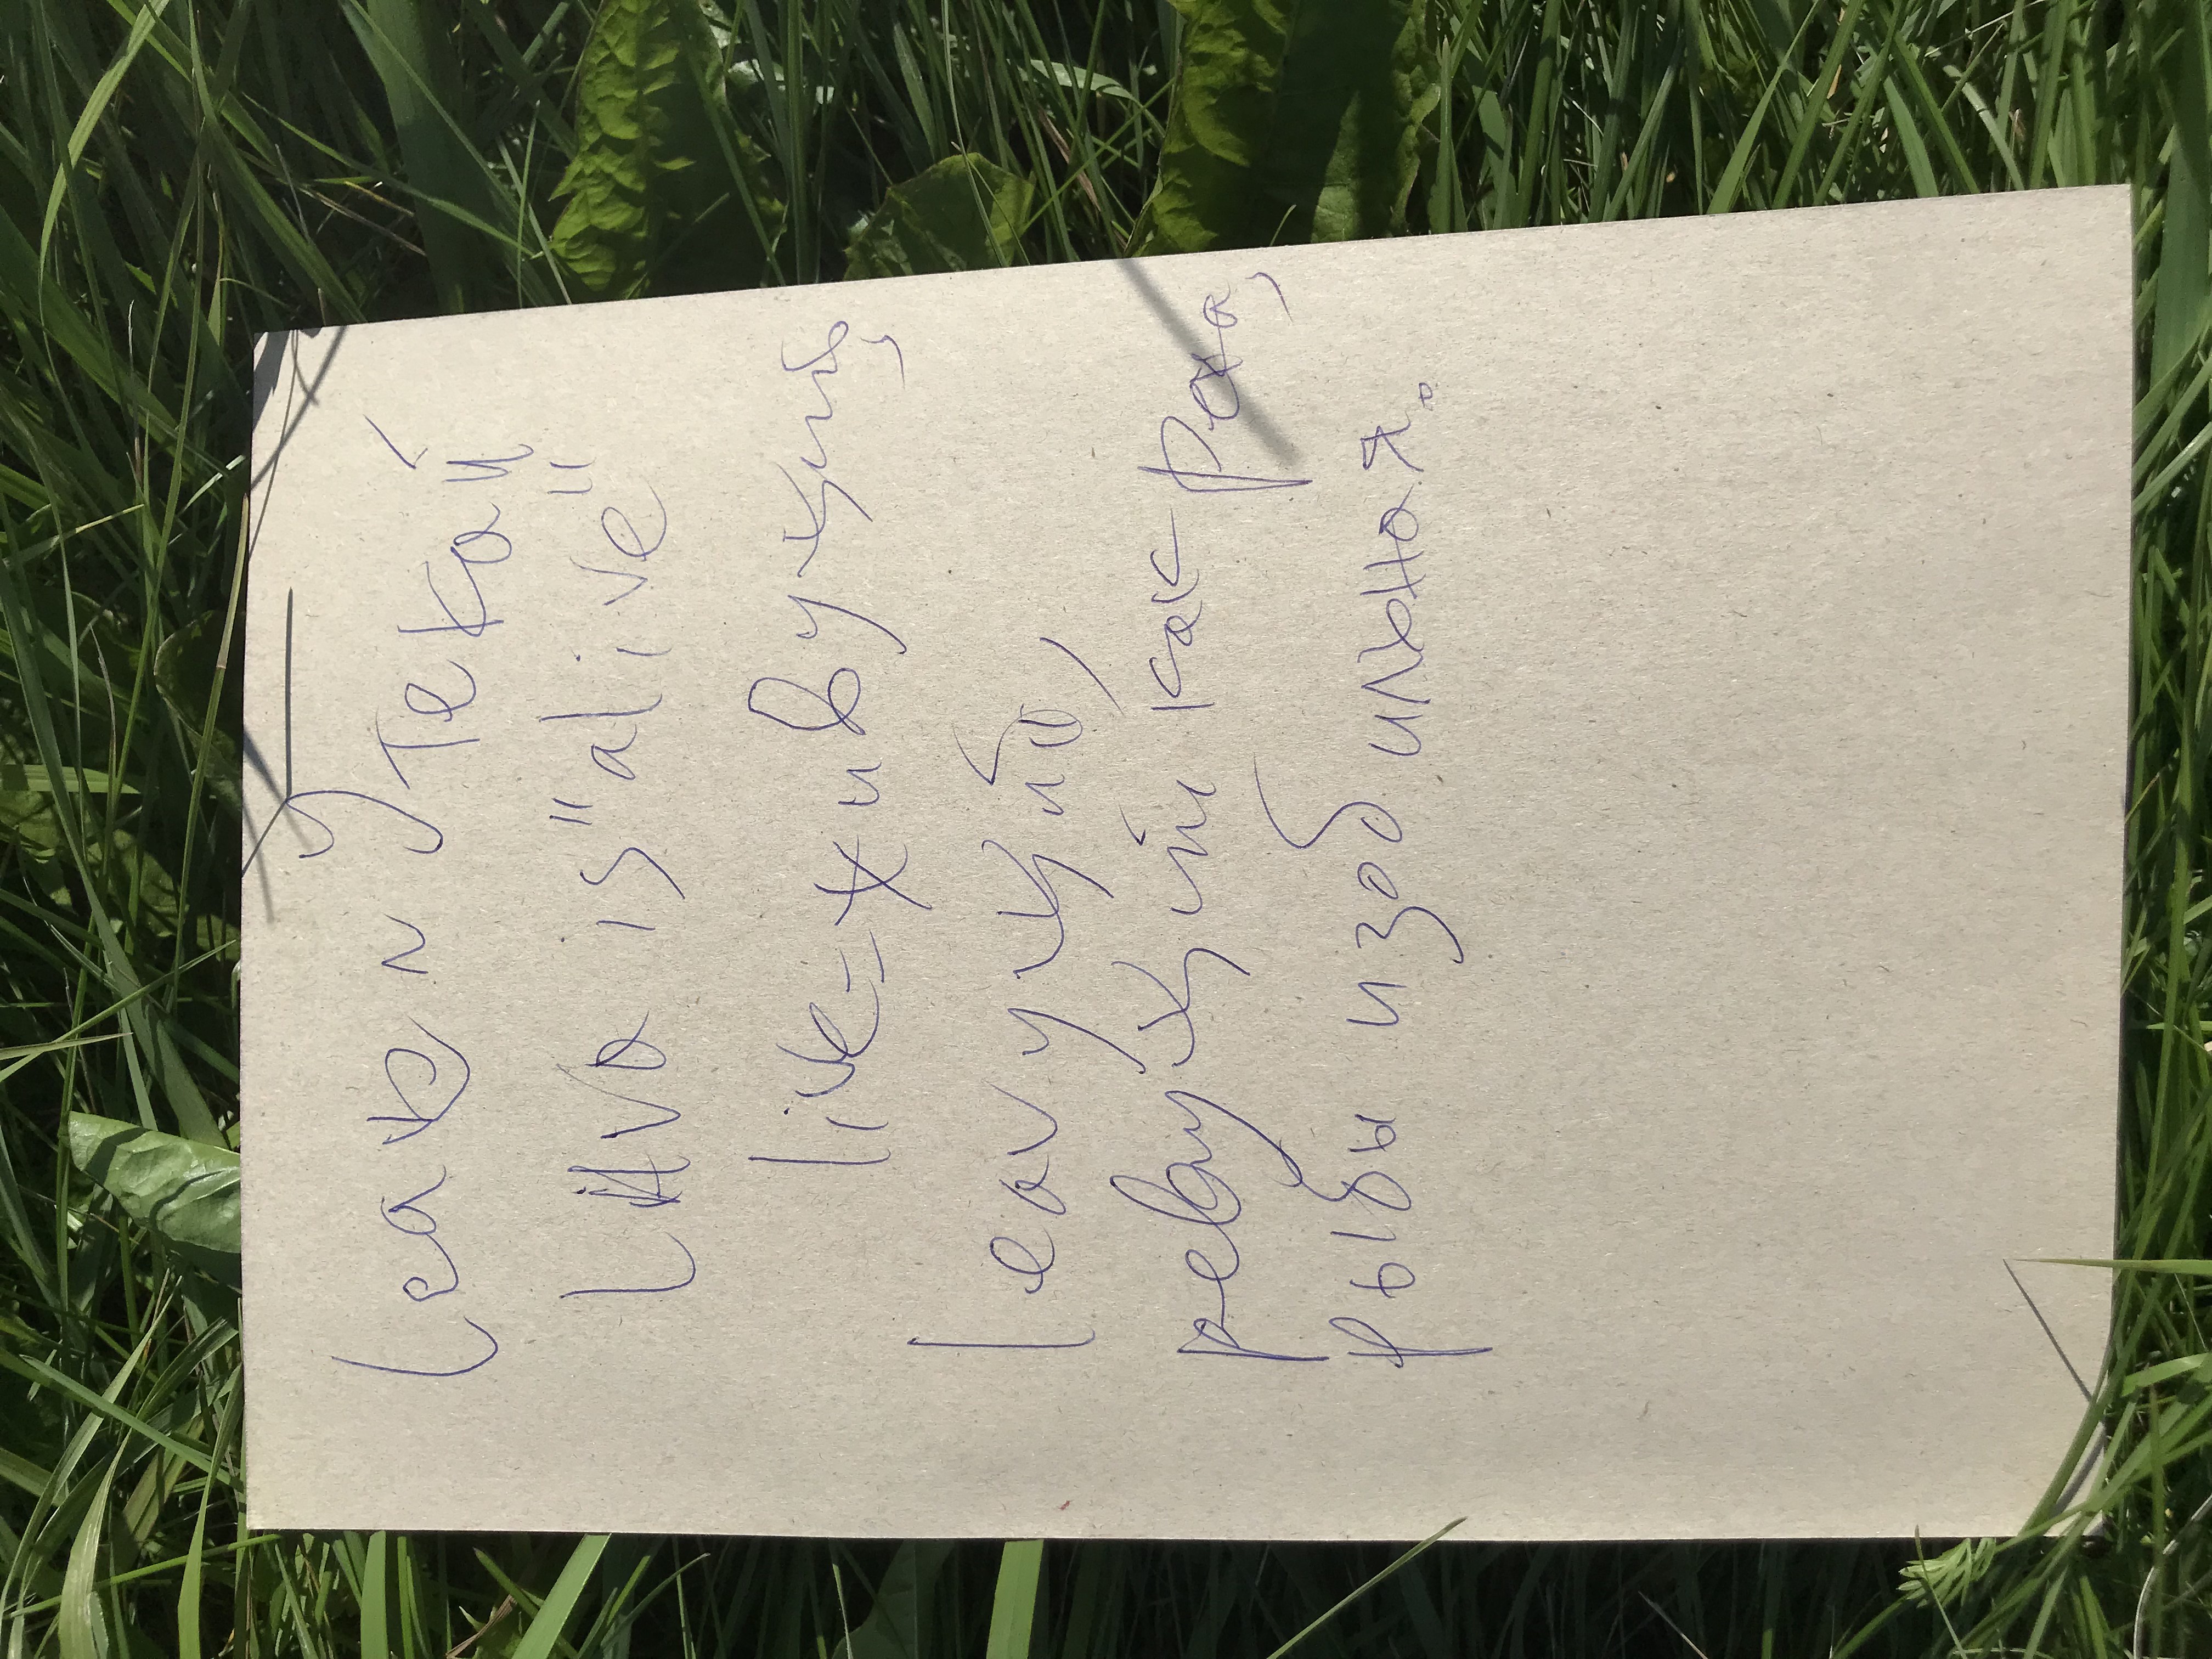 leave и утекай
LAva is "alive"
live=живущий,
leavущий,
ревущий как река,
рыбы изобильная.